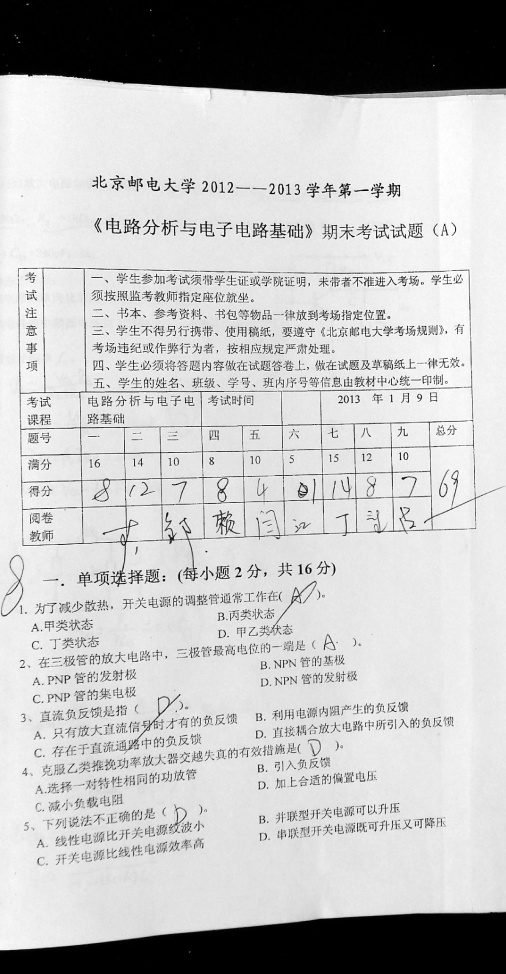 北京邮电大学 2012——2013 学年第一学期
《电路分析与电子电路基础》期末考试试题（A）
考试注意事项
一、学生参加考试须带学生证或学院证明，未带者不准进入考场。学生必
须按照监考教师指定座位就坐。
二、书本、参考资料、书包等物品一律放到考场指定位置。
三、学生不得另行携带、使用稿纸，要遵守《北京邮电大学考场规则》，有
考场违纪或作弊行为者，按相应规定严肃处理。
四、学生必须将答题内容做在试题答卷上，做在试题及草稿纸上一律无效。
五、学生的姓名、班级、学号、班内序号等信息由教材中心统一印制。
考试课程 电路分析与电子电路基础 考试时间 2013 年 1 月 9 日
题号 一 二 三 四 五 六 七 八 九 总分
满分 16 14 10 8 10 5 15 12 10
得分 8 12 7 8 4 1 14 8 7 69
阅卷教师 赖 闫 江 丁 吕
8
一．单项选择题：(每小题 2 分，共 16 分)
1. 为了减少散热，开关电源的调整管通常工作在( A )。
A.甲类状态 B.丙类状态
C. 丁类状态 D. 甲乙类状态
2、在三极管的放大电路中，三极管最高电位的一端是（ A ）。
A. PNP 管的发射极 B. NPN 管的基极
C. PNP 管的集电极 D. NPN 管的发射极
3、直流负反馈是指（ D ）。
A. 只有放大直流信号时才有的负反馈 B. 利用电源内阻产生的负反馈
C. 存在于直流通路中的负反馈 D. 直接耦合放大电路中所引入的负反馈
4、克服乙类推挽功率放大器交越失真的有效措施是( D )。
A.选择一对特性相同的功放管 B. 引入负反馈
C. 减小负载电阻 D. 加上合适的偏置电压
5、下列说法不正确的是（ D ）。
A. 线性电源比开关电源纹波小 B. 并联型开关电源可以升压
C. 开关电源比线性电源效率高 D. 串联型开关电源既可升压又可降压